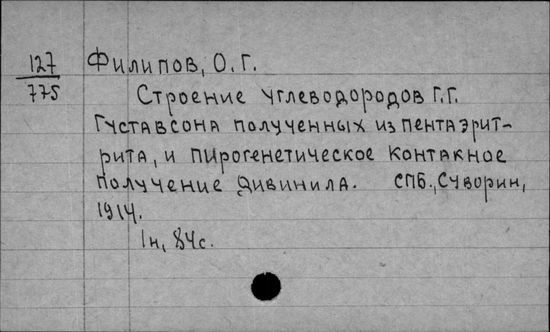 127 Филипов, О. Г.
775
Строение углеводородов Г.Г.
Густавсона полученных из пентаэрит-
рита, и пирогенетическое контакное
получение дивинила. СПб., Суворин,
1914.
1н, 84с.